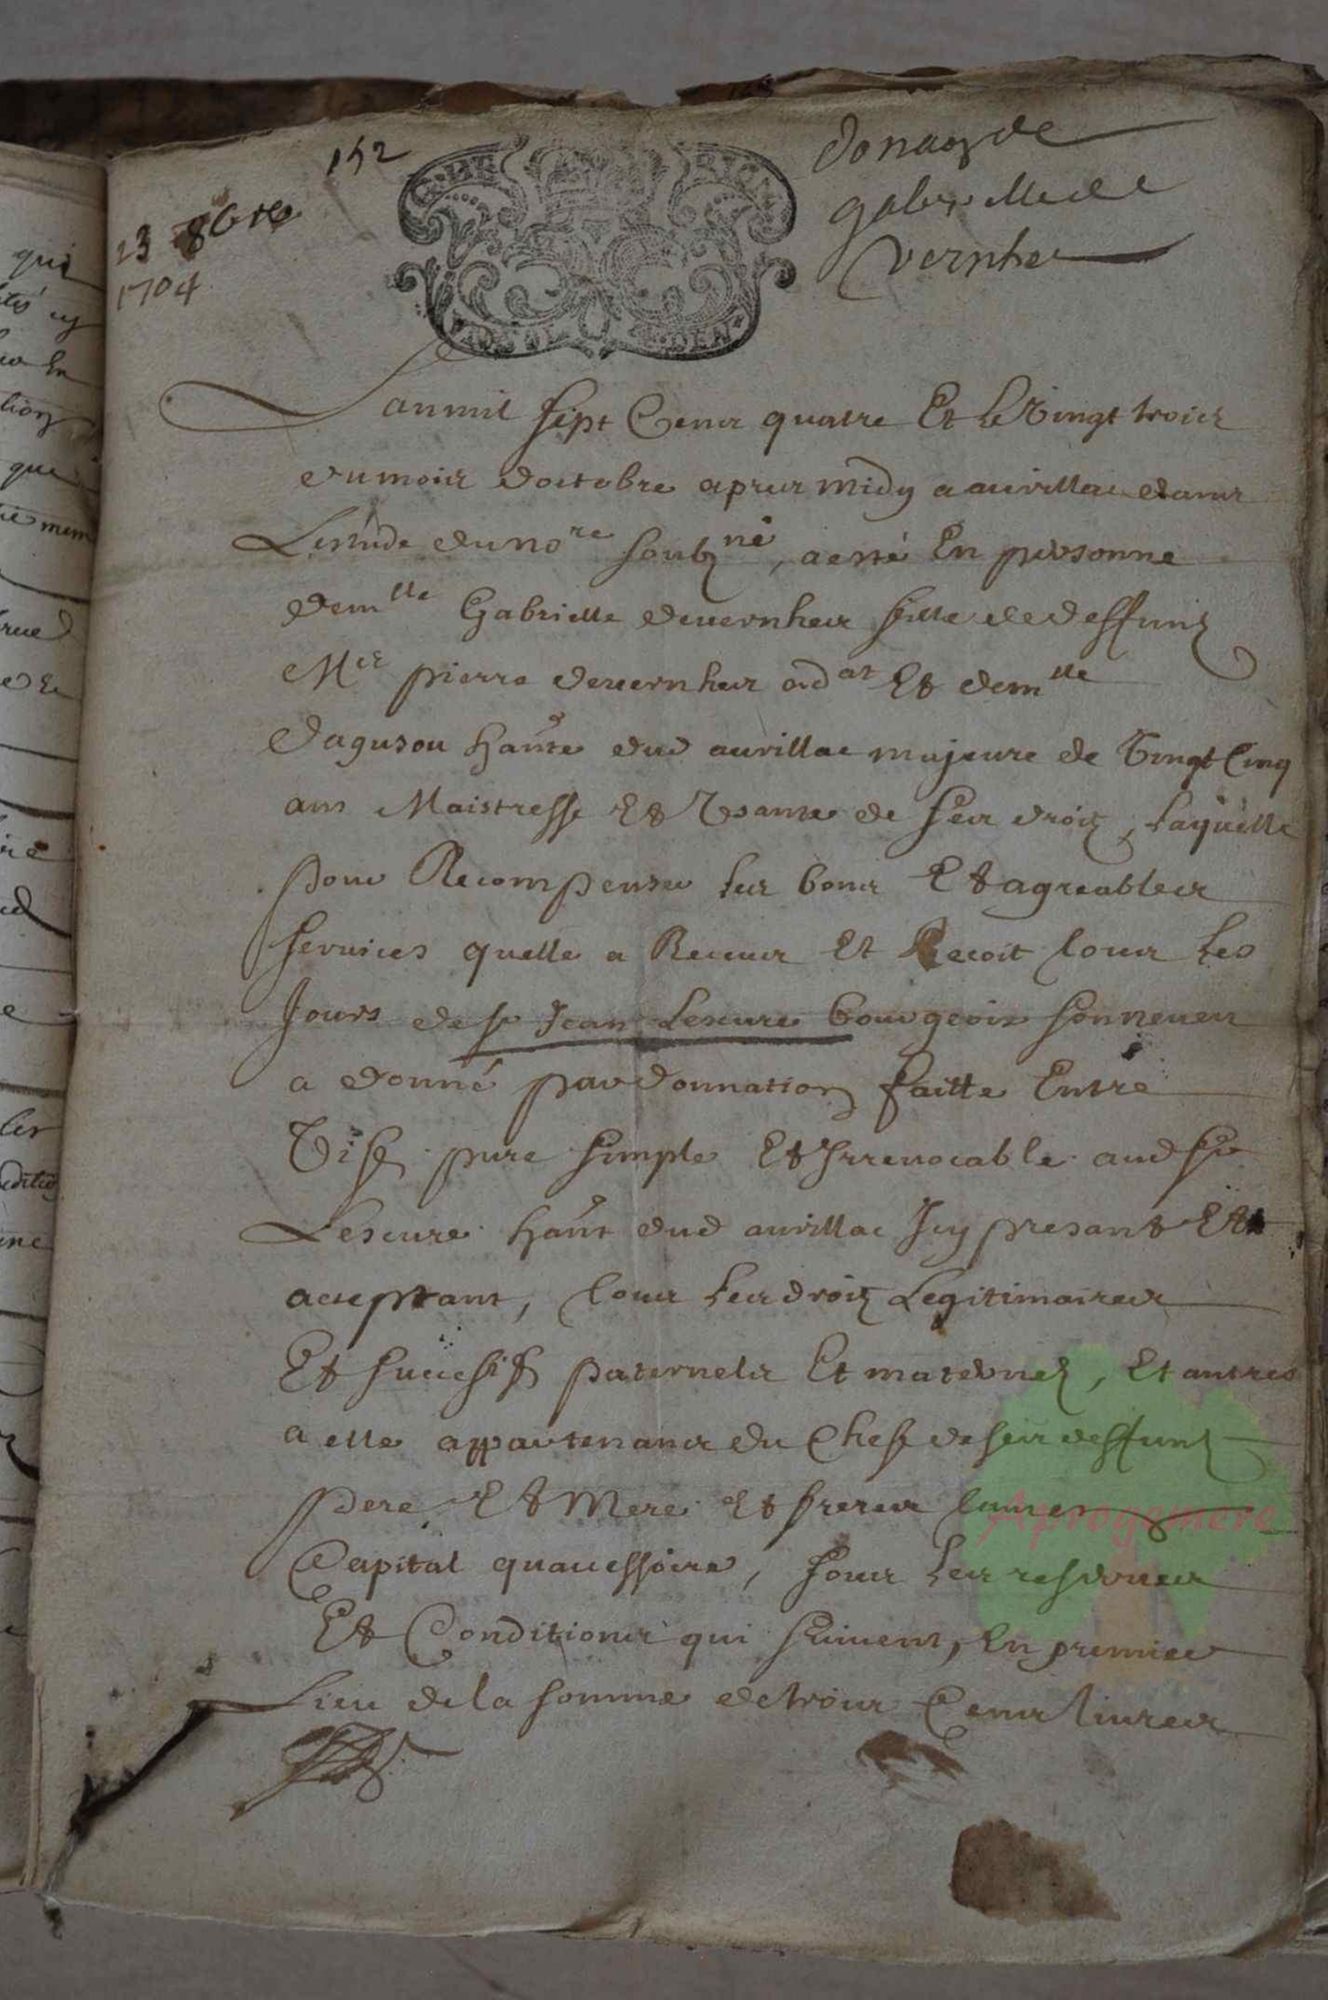 152
donaon de
gabrielle de
vernhes
23 8bre
1704
L'an mil sept Cens quatre Et le Vingt trois
du mois doctobre apres midy a aurillac dans
Lestude du nore soubzné, a esté En personne
demlle Gabrielle devernhes fille de deffuntz
Me pierre devernhes adat Et demlle
dagusou hante dud aurillac majeure de Vingt Cinq
ans Maistresse Et Usante de ses droitz, Laquelle
pour Recompenser Les bons Et agreables
services quelle a Receus Et Recoit tous Les
Jours de sr Jean Lescure bourgeois son neveu
a donné par donnation faitte Entre
Vifs pure simple Et Irrevocable aud sr
Lescure hant dud aurillac Icy presant Et
acceptant, tous Les droitz Legitimaires
Et successifs paternels Et maternelz, Et autres
a elle appartenans du Chef de ses deffuntz
pere Et Mere Et freres tant en
Capital quacessoire, sous Les reserves
Et Conditions qui suivent, En premier
Lieu de la somme de trois Cens livres
Aprogemere